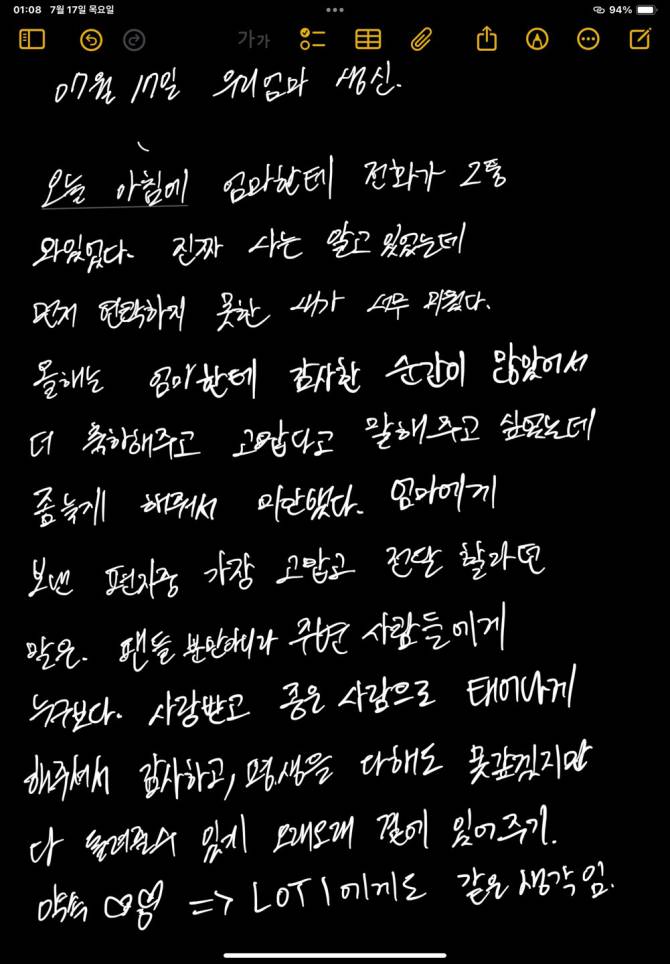 01:08 7월 17일 목요일
94%
가가
07월 17일 우리엄마 생신.
오늘 아침에 엄마한테 전화가 2통
와있었다. 진짜 나는 알고 있었는데
먼저 연락하지 못한 내가 너무 미웠다.
올해는 엄마한테 감사한 순간이 많았어서
더 축하해주고 고맙다고 말해주고 싶었는데
좀 늦게 해줘서 미안했다. 엄마에게
보낸 편지중 가장 고맙고 전달 할라던
말은. 팬들 뿐만아니라 주변 사람들에게
누구보다. 사랑받고 좋은 사람으로 태어나게
해주셔서 감사하고, 평생을 다해도 못갚겠지만
다 돌려줄수 있게 오래오래 곁에 있어주기.
약속 => LOT1에게도 같은 생각임.